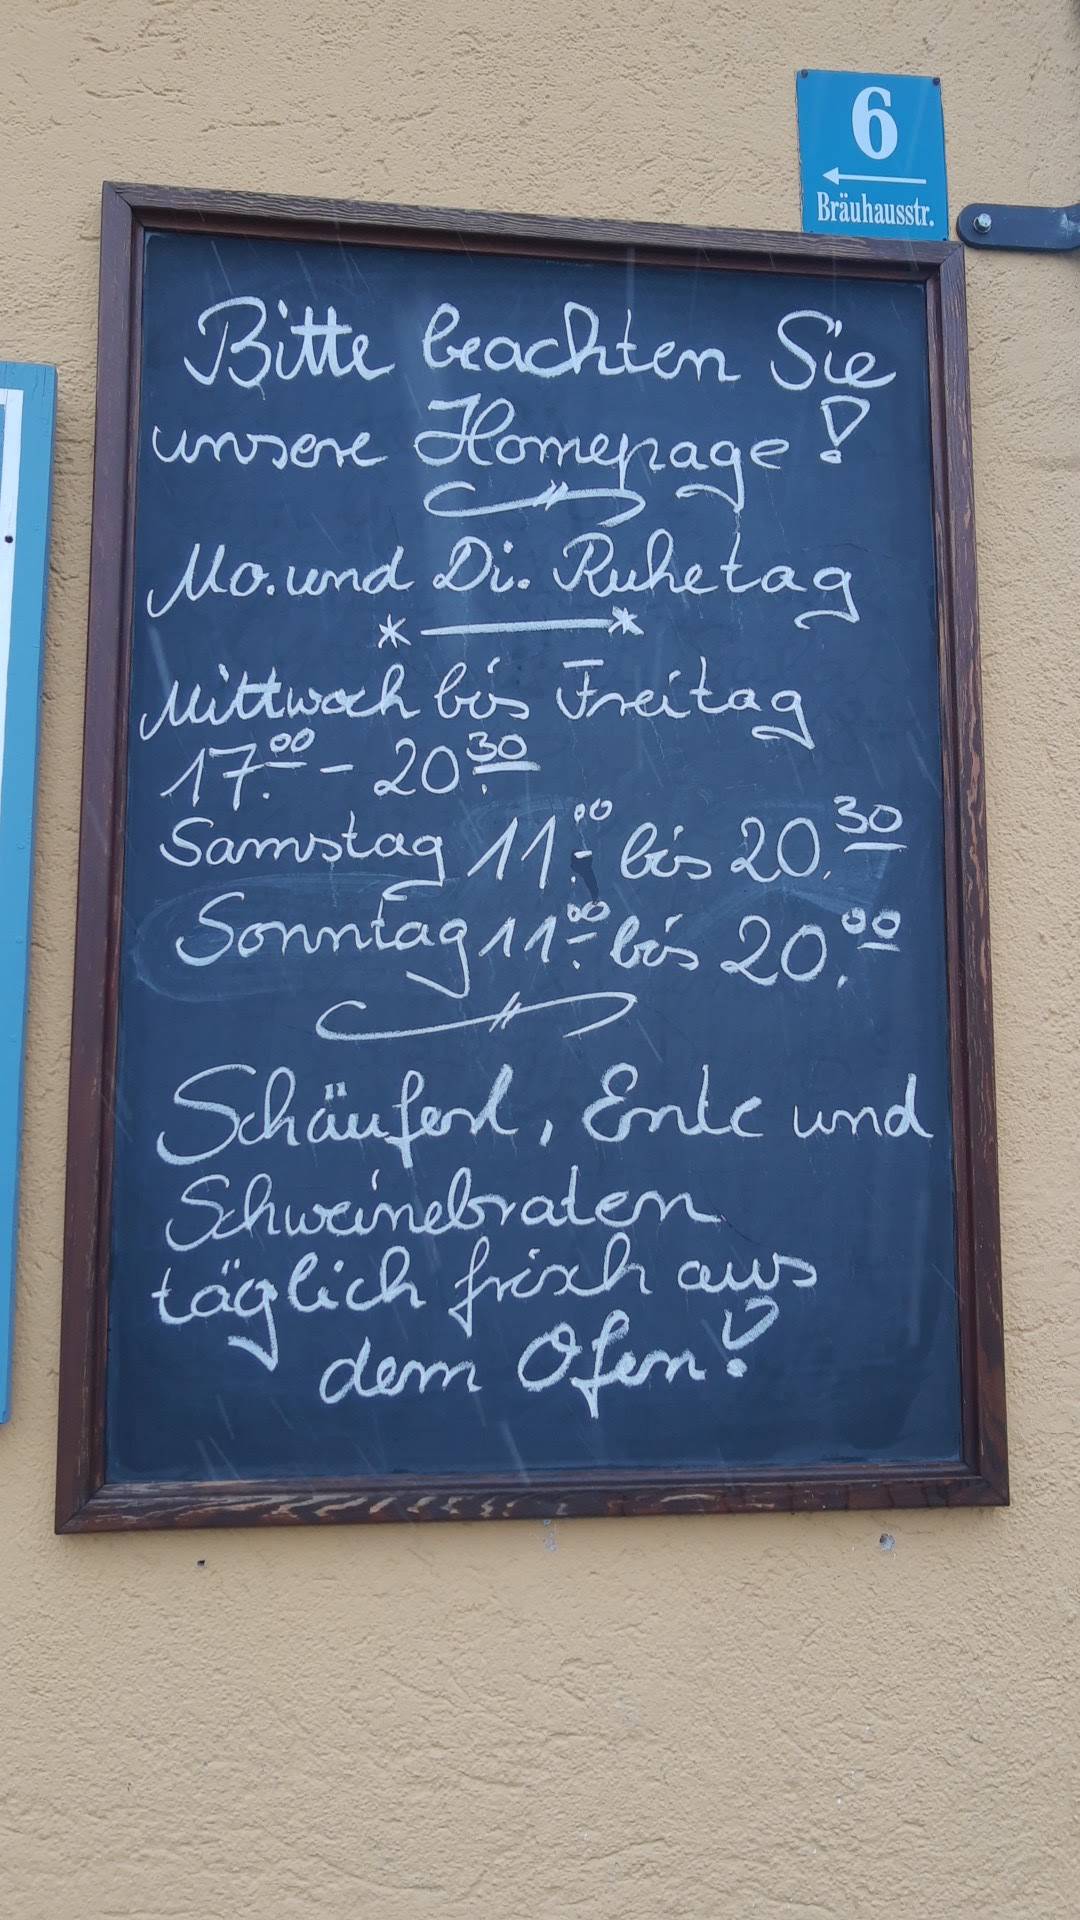 6
Bräuhausstr.
Bitte beachten Sie
unsere Homepage!
Mo. und Di. Ruhetag
Mittwoch bis Freitag
17.00 - 20.30
Samstag 11.00 bis 20.30
Sonntag 11.00 bis 20.00
Schäuferl, Ente und
Schweinebraten
täglich frisch aus
dem Ofen!